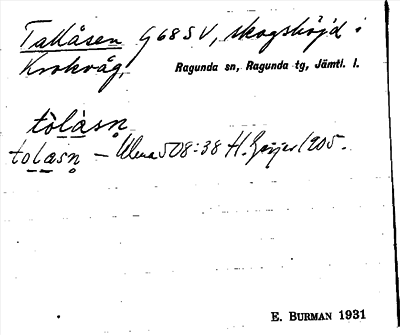 Tallåsen G68SV, skogshöjd i
Krokvåg, Ragunda sn, Ragunda tg, Jämtl. l.
tòlàsn̥
tolasn̥ – Ulma 508:38 H. Geijer 1905.
E. BURMAN 1931